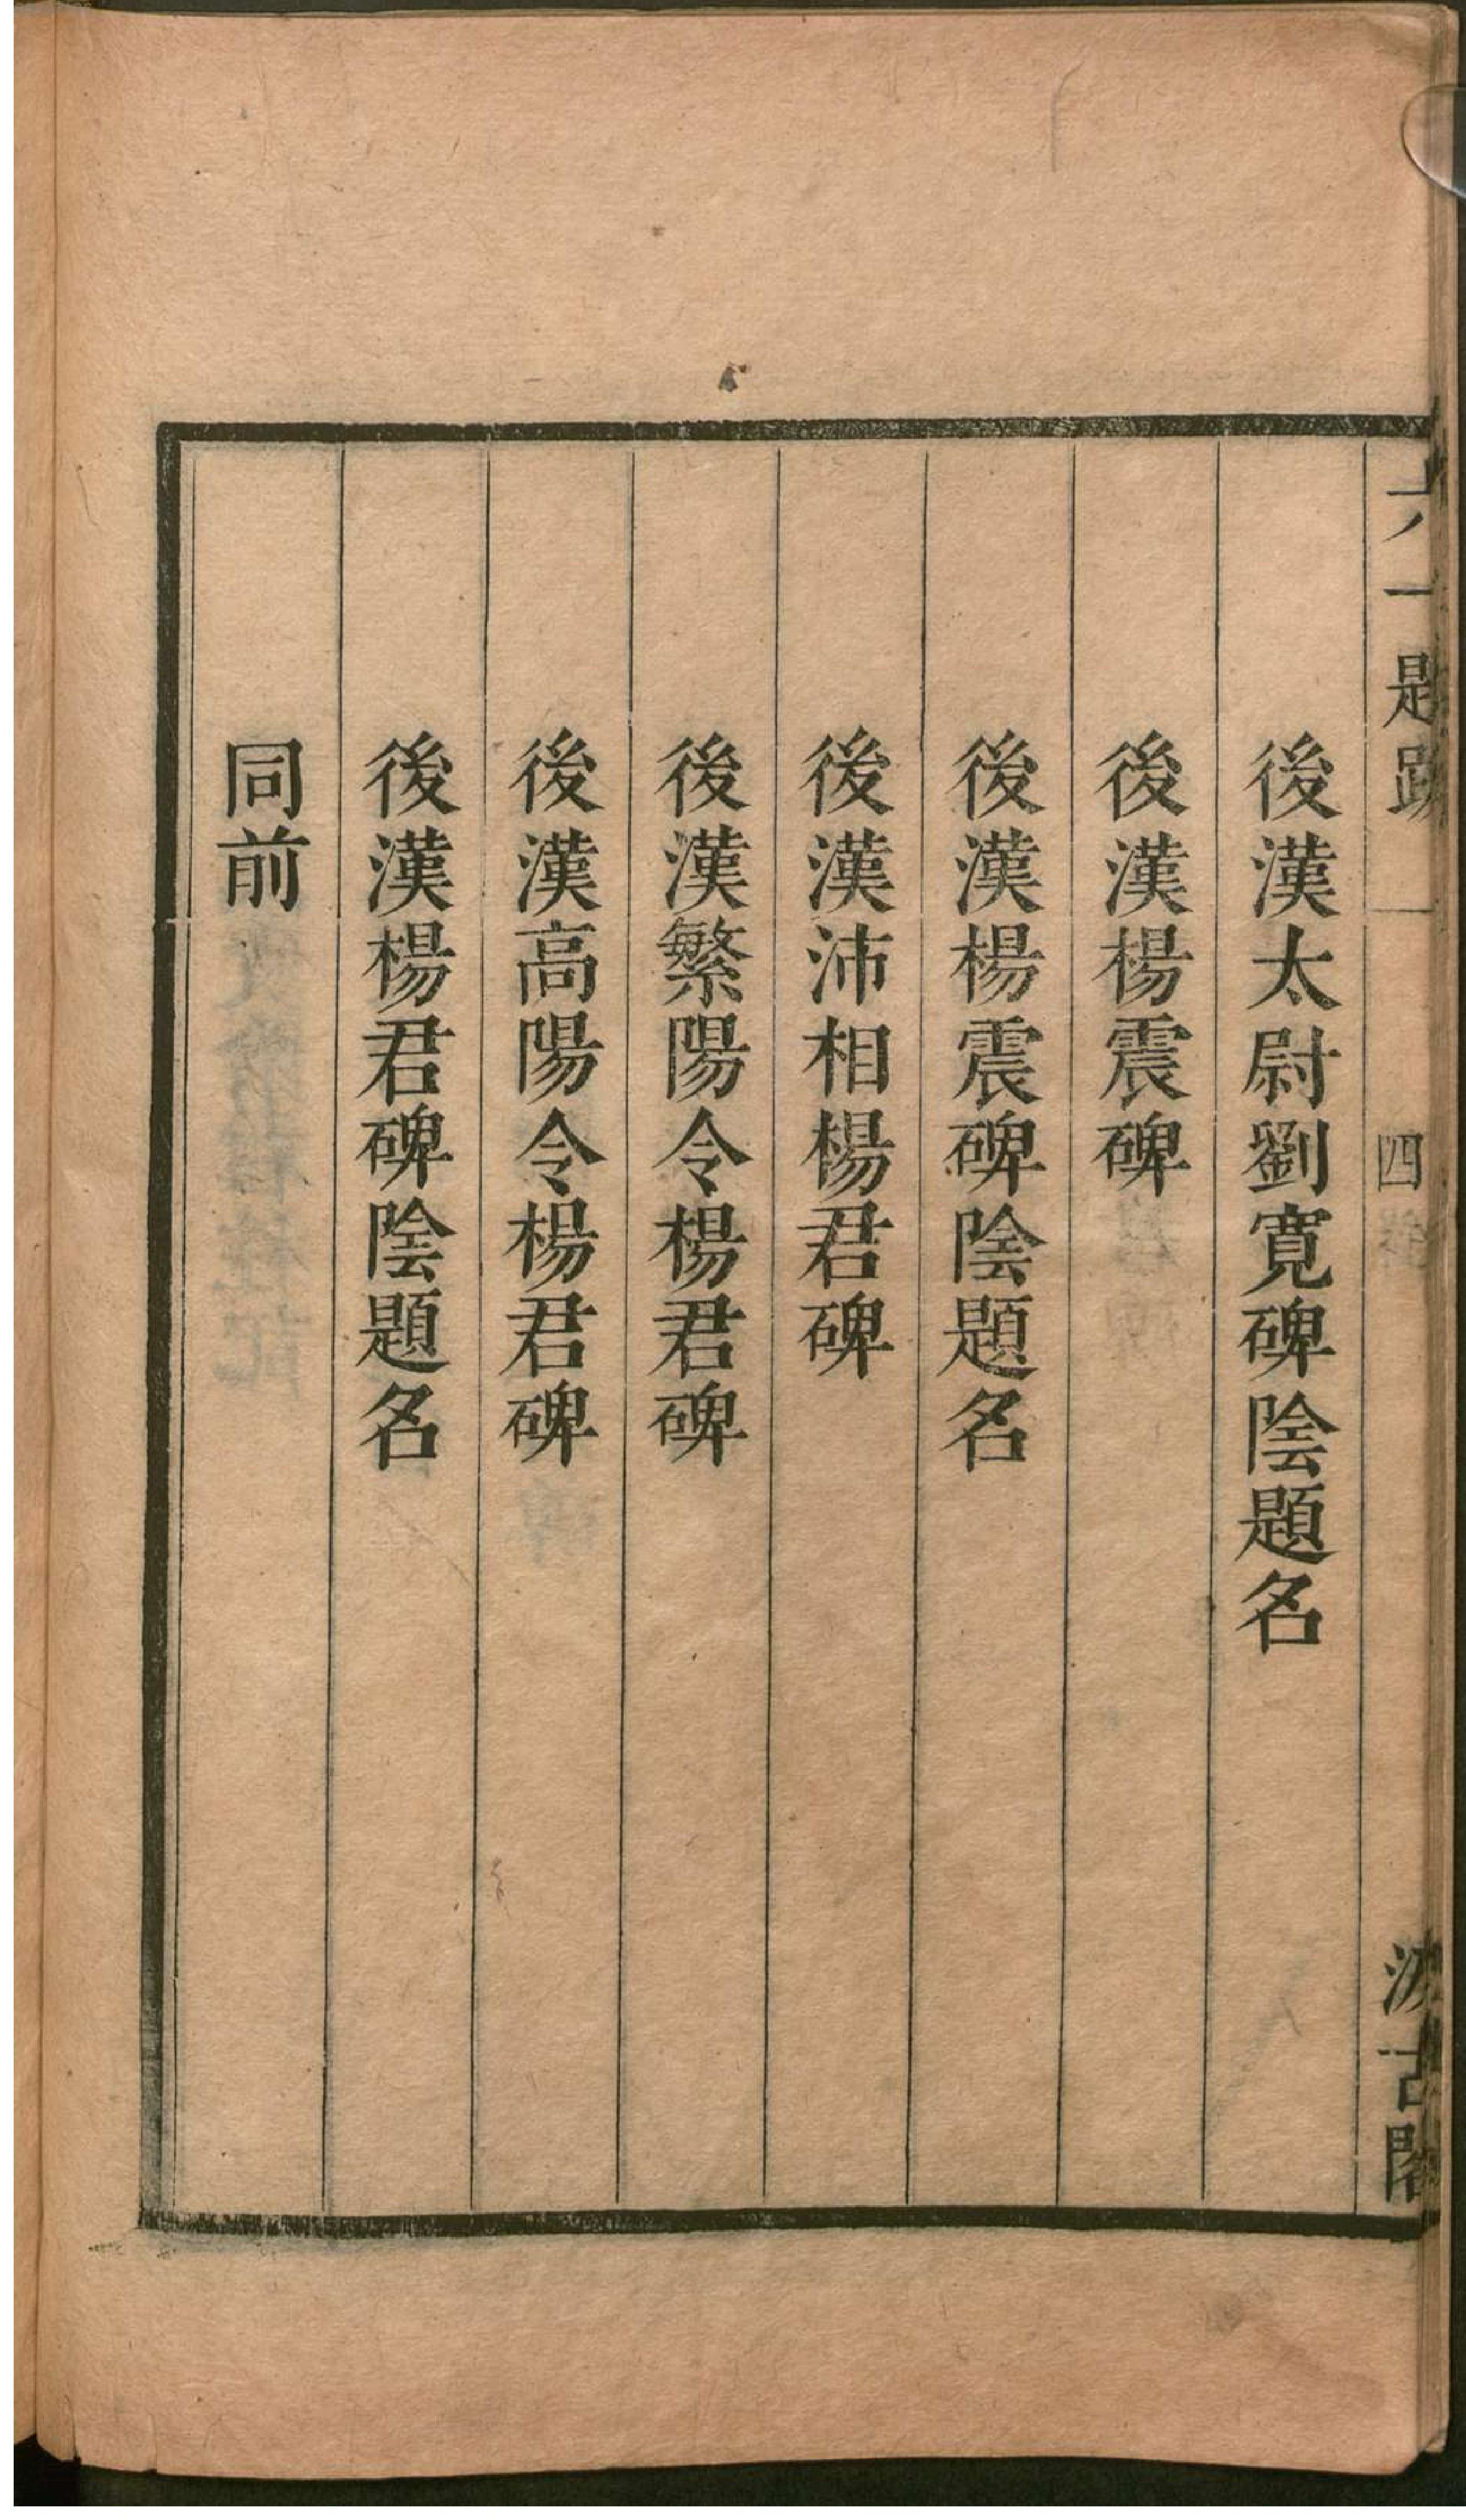 六一題跋
四
汲古閣
後漢太尉劉寬碑陰題名
後漢楊震碑
後漢楊震碑陰題名
後漢沛相楊君碑
後漢繁陽令楊君碑
後漢高陽令楊君碑
後漢楊君碑陰題名
同前